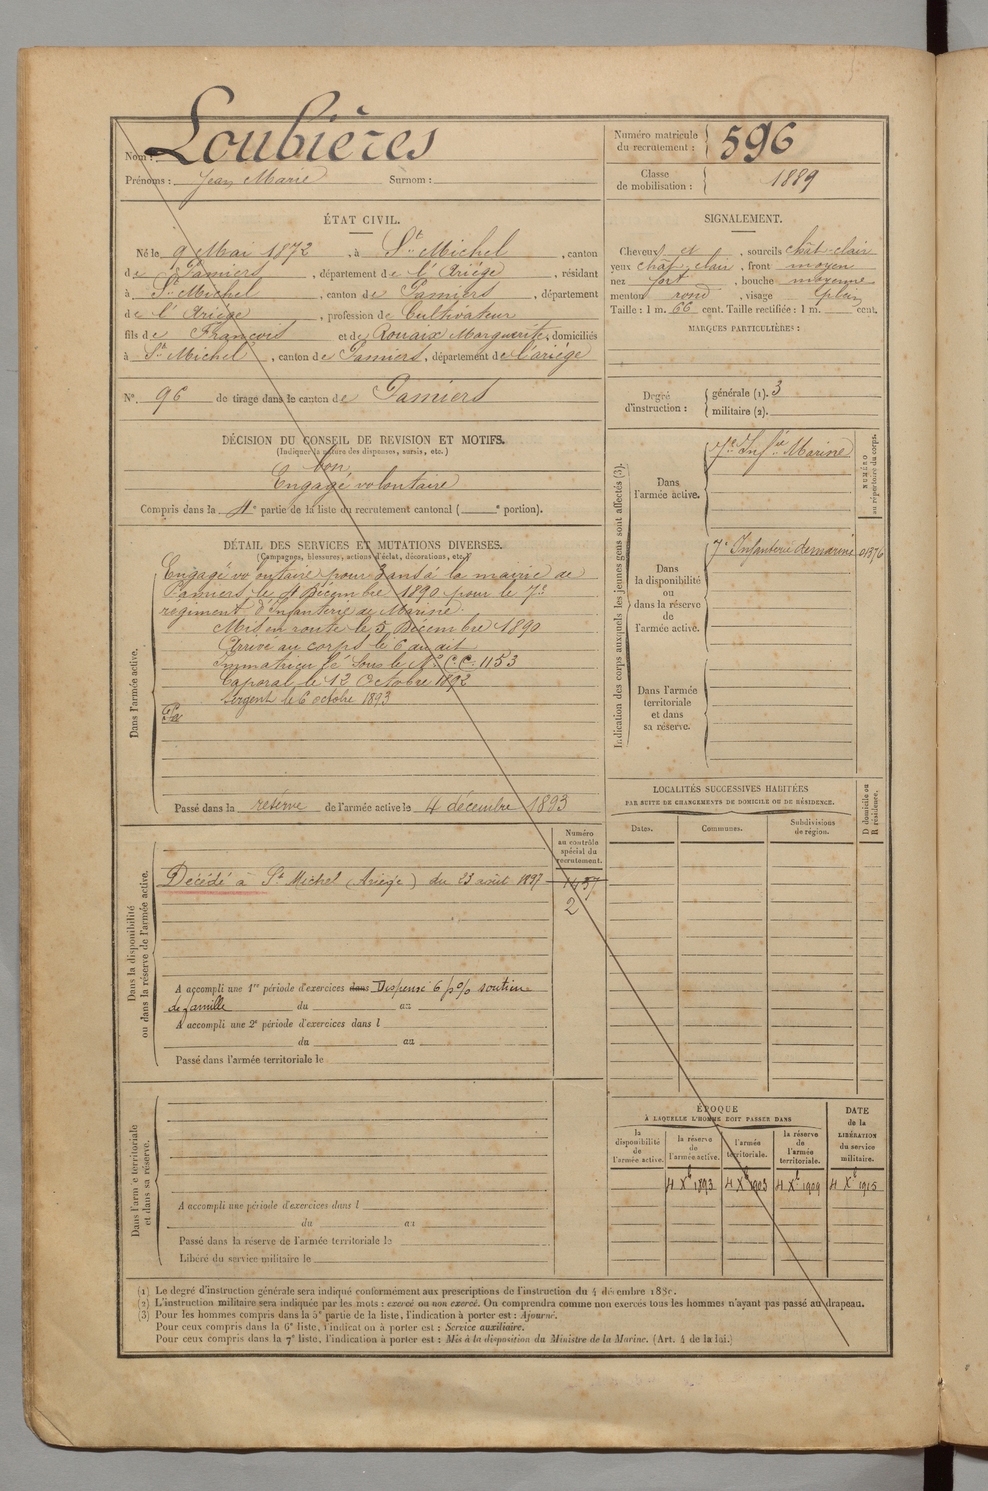 Nom : Loubières
Prénoms : Jean Marie Surnom :
Numéro matricule du recrutement : 596
Classe de mobilisation : 1889
ÉTAT CIVIL.
Né le 9 Mai 1872, à St Michel, canton
de Pamiers, département de l'Ariège, résidant
à St Michel, canton de Pamiers, département
de l'Ariège, profession de Cultivateur
fils de François et de Rouaix Marguerite, domiciliés
à St Michel, canton de Pamiers, département de l'ariège
N°. 96 de tirage dans le canton de Pamiers
SIGNALEMENT.
Cheveux et, sourcils chât-clair
yeux chât clair, front moyen
nez fort, bouche moyenne
menton rond, visage plein
Taille : 1 m. 66 cent. Taille rectifiée : 1 m. cent.
MARQUES PARTICULIÈRES :
Degré d'instruction :
générale (1). 3
militaire (2).
DÉCISION DU CONSEIL DE REVISION ET MOTIFS.
(Indiquer la nature des dispenses, sursis, etc.)
bon
Engagé volontaire
Compris dans la 4e partie de la liste du recrutement cantonal ( e portion).
DÉTAIL DES SERVICES ET MUTATIONS DIVERSES.
(Campagnes, blessures, actions d'éclat, décorations, etc.)
Dans l'armée active.
Engagé volontaire pour 3 ans à la mairie de
Pamiers le 4 Décembre 1890 pour le 7e
régiment d'Infanterie de Marine.
Mis en route le 5 Décembre 1890
Arrivé au corps le 6 du dit
Immatriculé sous le No C.C. 1153
Caporal le 12 Octobre 1892
Sergent le 6 octobre 1893
Passé dans la réserve de l'armée active le 4 décembre 1893
Indication des corps auxquels les jeunes gens sont affectés (3).
NUMÉRO au répertoire du corps.
Dans l'armée active.
7e Infie Marine
Dans la disponibilité ou dans la réserve de l'armée active.
7e Infanterie de marine 01376
Dans l'armée territoriale et dans sa réserve.
LOCALITÉS SUCCESSIVES HABITÉES
PAR SUITE DE CHANGEMENTS DE DOMICILE OU DE RÉSIDENCE.
D domicile ou R résidence.
Dates. Communes. Subdivisions de région.
Numéro au contrôle spécial du recrutement.
Dans la disponibilité ou dans la réserve de l'armée active.
Décédé à St Michel (Ariège) du 23 août 1897
1437
2
A accompli une 1re période d'exercices dans Dispensé 6 p % soutien
de famille du au
A accompli une 2e période d'exercices dans l
du au
Passé dans l'armée territoriale le
Dans l'armée territoriale et dans sa réserve.
A accompli une période d'exercices dans l
du au
Passé dans la réserve de l'armée territoriale le
Libéré du service militaire le
ÉPOQUE
À LAQUELLE L'HOMME DOIT PASSER DANS
la disponibilité de l'armée active.
la réserve de l'armée active.
l'armée territoriale.
la réserve de l'armée territoriale.
DATE de la LIBÉRATION du service militaire.
4 Xbre 1893 4 Xbre 1903 4 Xbre 1909 4 Xbre 1915
(1) Le degré d'instruction générale sera indiqué conformément aux prescriptions de l'instruction du 4 décembre 1889.
(2) L'instruction militaire sera indiquée par les mots : exercé ou non exercé. On comprendra comme non exercés tous les hommes n'ayant pas passé au drapeau.
(3) Pour les hommes compris dans la 5e partie de la liste, l'indication à porter est : Ajourné.
Pour ceux compris dans la 6e liste, l'indication à porter est : Service auxiliaire.
Pour ceux compris dans la 7e liste, l'indication à porter est : Mis à la disposition du Ministre de la Marine. (Art. 4 de la loi.)